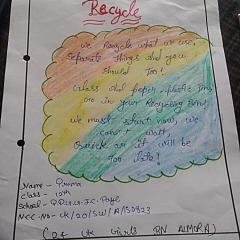 Recycle
We Recycle what we use,
Separate things and you
Should Too!
Glass and paper, plastic tins
Go in your Recycling Bins,
we must start now, we
can't wait,
Quick or it will be
Too late!
Name -
Class - 12th
School -
NCC. No - UK/20/SW/A/150823
Girls BN ALMORA)